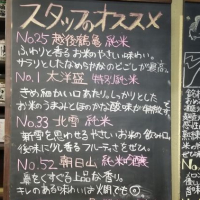 スタッフのオススメ
No.25 越後鶴亀 純米
ふわりと香るお米のやさしい味わい。
サラリとしたなめらかなのどごしが最高。
No.1 太平盛 特別純米
きめ細かい口あたり。しっかりとした
お米のうまみとほのかな酸味が特徴です
No.33 北雪 純米
新雪を思わせるやさしいお米の飲み口。
後味に少し香るフルーティさをぜひ。
No.52 朝日山 純米吟醸
鼻をすぐる上品な香り。
キレのある味わいは火燗でも◎